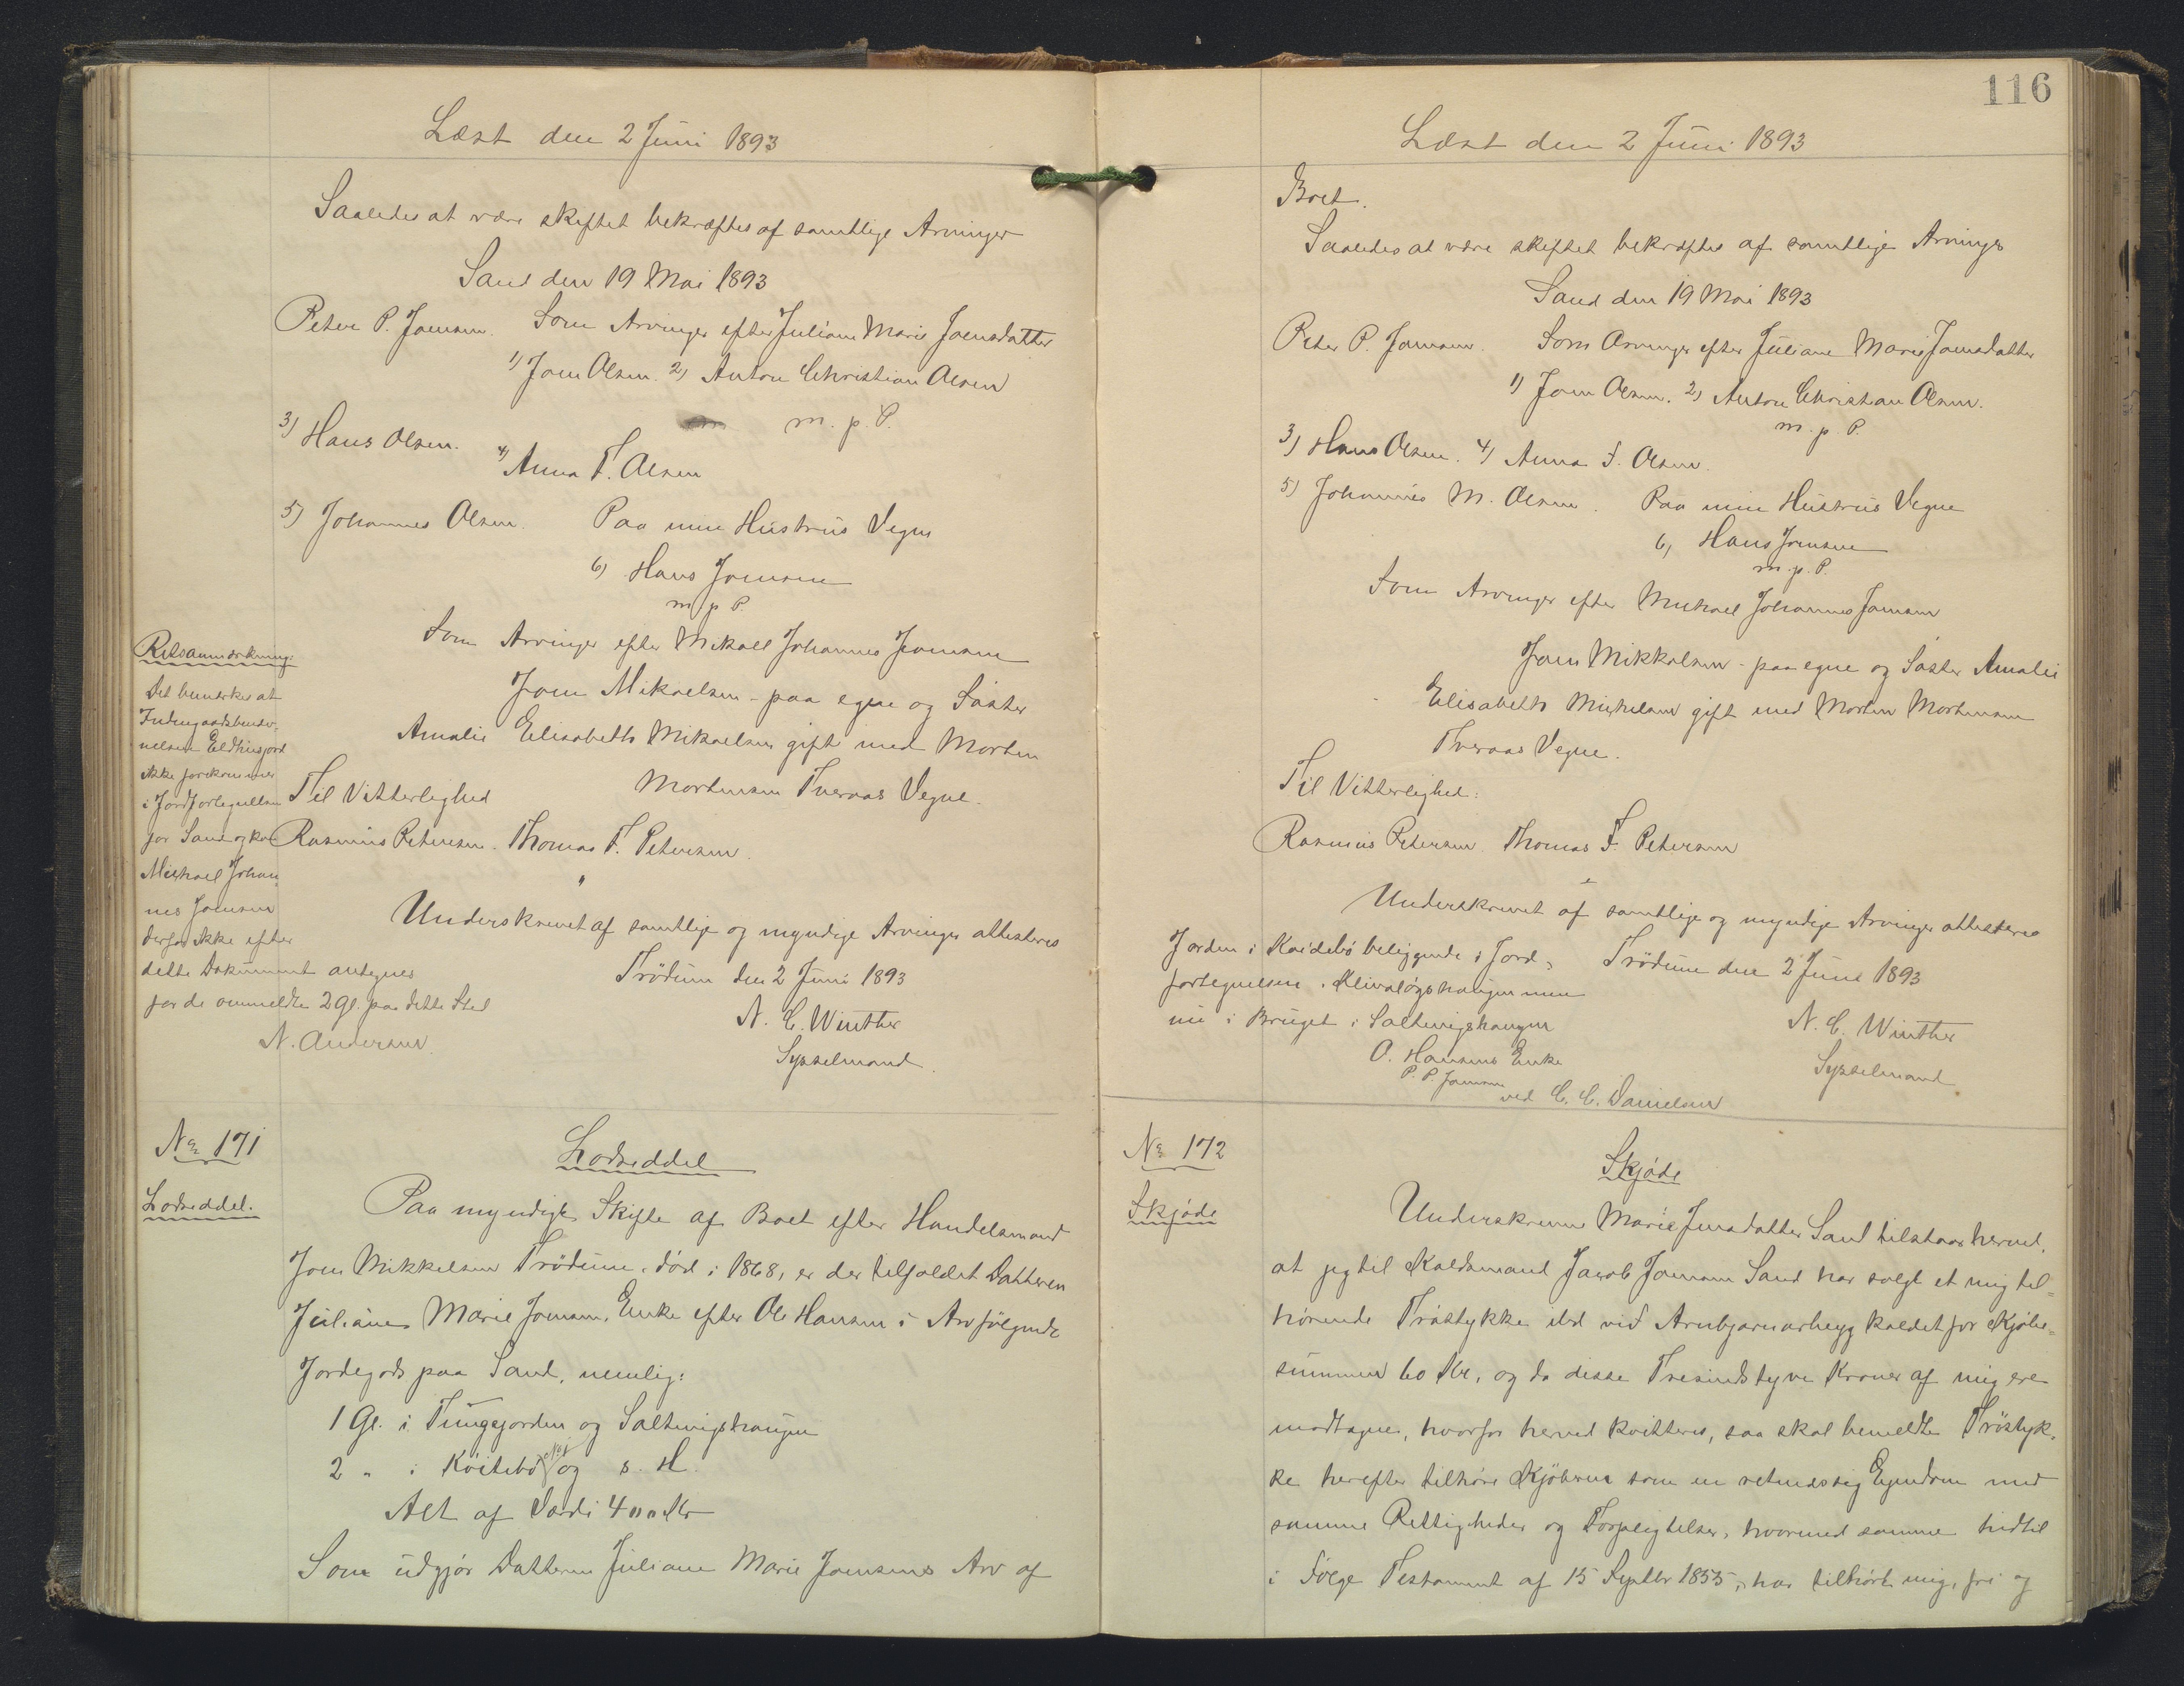 Læst den 2 Juni 1893
Saaledes at være skiftet bekræftes af samtlige Arvinger
Sand den 19 Mai 1893
Peter P. Joensen. Som Arvinger efter Juliane Marie Joensdatter
1) Joen Olsen. 2) Anton Christian Olsen
m. p. P.
3) Hans Olsen.
4) Anna F. Olsen
5) Johannes Olsen. Paa min Hustrus Vegne
6) Hans Joensen
m. p. P.
Som Arvinger efter Mikael Johannes Joensen
Joen Mikaelsen - paa egne og Søster
Amalie Elisabeth Mikaelsen gift med Morten
Mortensen Tveraas Vegne.
Til Vitterlighed
Rasmus Petersen. Thomas F. Petersen.
Underskrevet af samtlige og myndige Arvinger attesteres
Trödum den 2 Juni 1893
N. C. Winther
Sysselmand.
Retsanmærkning:
Det bemærkes at
nelsen Eldhusjord
ikke forekommer
i Jordfortegnelsen
for Sand og kan
Michael Johan-
nes Joensen
derfor ikke efter
dette Dokument antegnes
for de ommeldte 2 Gl. paa dette Sted
N. Andersen
No 171
Lodseddel.
Lodseddel
Paa myndigt Skifte af Boet efter Handelsmand
Joen Mikkelsen Trödum, död i 1868, er der tilfaldet Datteren
Juliane Marie Joensen, Enke efter Ole Hansen i Arv følgende
Jordegods paa Sand, nemlig:
1 Gl. i Tungejorden og Saltvigshaugen
2 " i Köitebö og s. H.
Alt af Værdi 400 Kr
Som udgjør Datteren Juliane Marie Joensens Arv af
116
Læst den 2 Juni 1893
Boet.
Saaledes at være skiftet bekræftes af samtlige Arvinger
Sand den 19 Mai 1893
Peter P. Joensen. Som Arvinger efter Juliane Marie Joensdatter
1) Joen Olsen. 2) Anton Christian Olsen.
m. p. P.
3) Hans Olsen. 4) Anna F. Olsen.
5) Johannes M. Olsen. Paa min Hustrus Vegne
6) Hans Joensen
m. p. P.
Som Arvinger efter Michael Johannes Joensen
Joen Mikkelsen - paa egne og Søster Amalie
Elisabeth Mickelsen gift med Morten Mortensen
Tveraas Vegne.
Til Vitterlighed:
Rasmus Petersen. Thomas F. Petersen
Underskrevet af samtlige og myndige Arvinger attesteres
Trödum den 2 Juni 1893
N. C. Winther
Sysselmand
Jorden i Köidebö beliggende i Jord-
fortegnelsen i men
nu i Bruget i Saltvigshaugen
O. Hansens Enke
P. P. Joensen
ved C. C. Danielsen
No 172
Skjøde
Skjøde
Underskrevne Marie Jensdatter Sand tilstaar herved,
at jeg til Kaldsmand Jacob Joensen Sand har solgt et mig til-
hörende Tröstykke ved kaldet for Kjöbe-
summen 60 Kr, og da disse Tresindstyve Kroner af mig ere
modtagne, hvorfor herved kvitteres, saa skal bemeldte Tröstyk-
ke herefter tilhöre Kjöberen som en retmæssig Eiendom med
samme Rettigheder og Forpligtelser, hvormed samme hidtil
i Følge Testament af 15 Septbr 1855, har tilhört mig, fri og